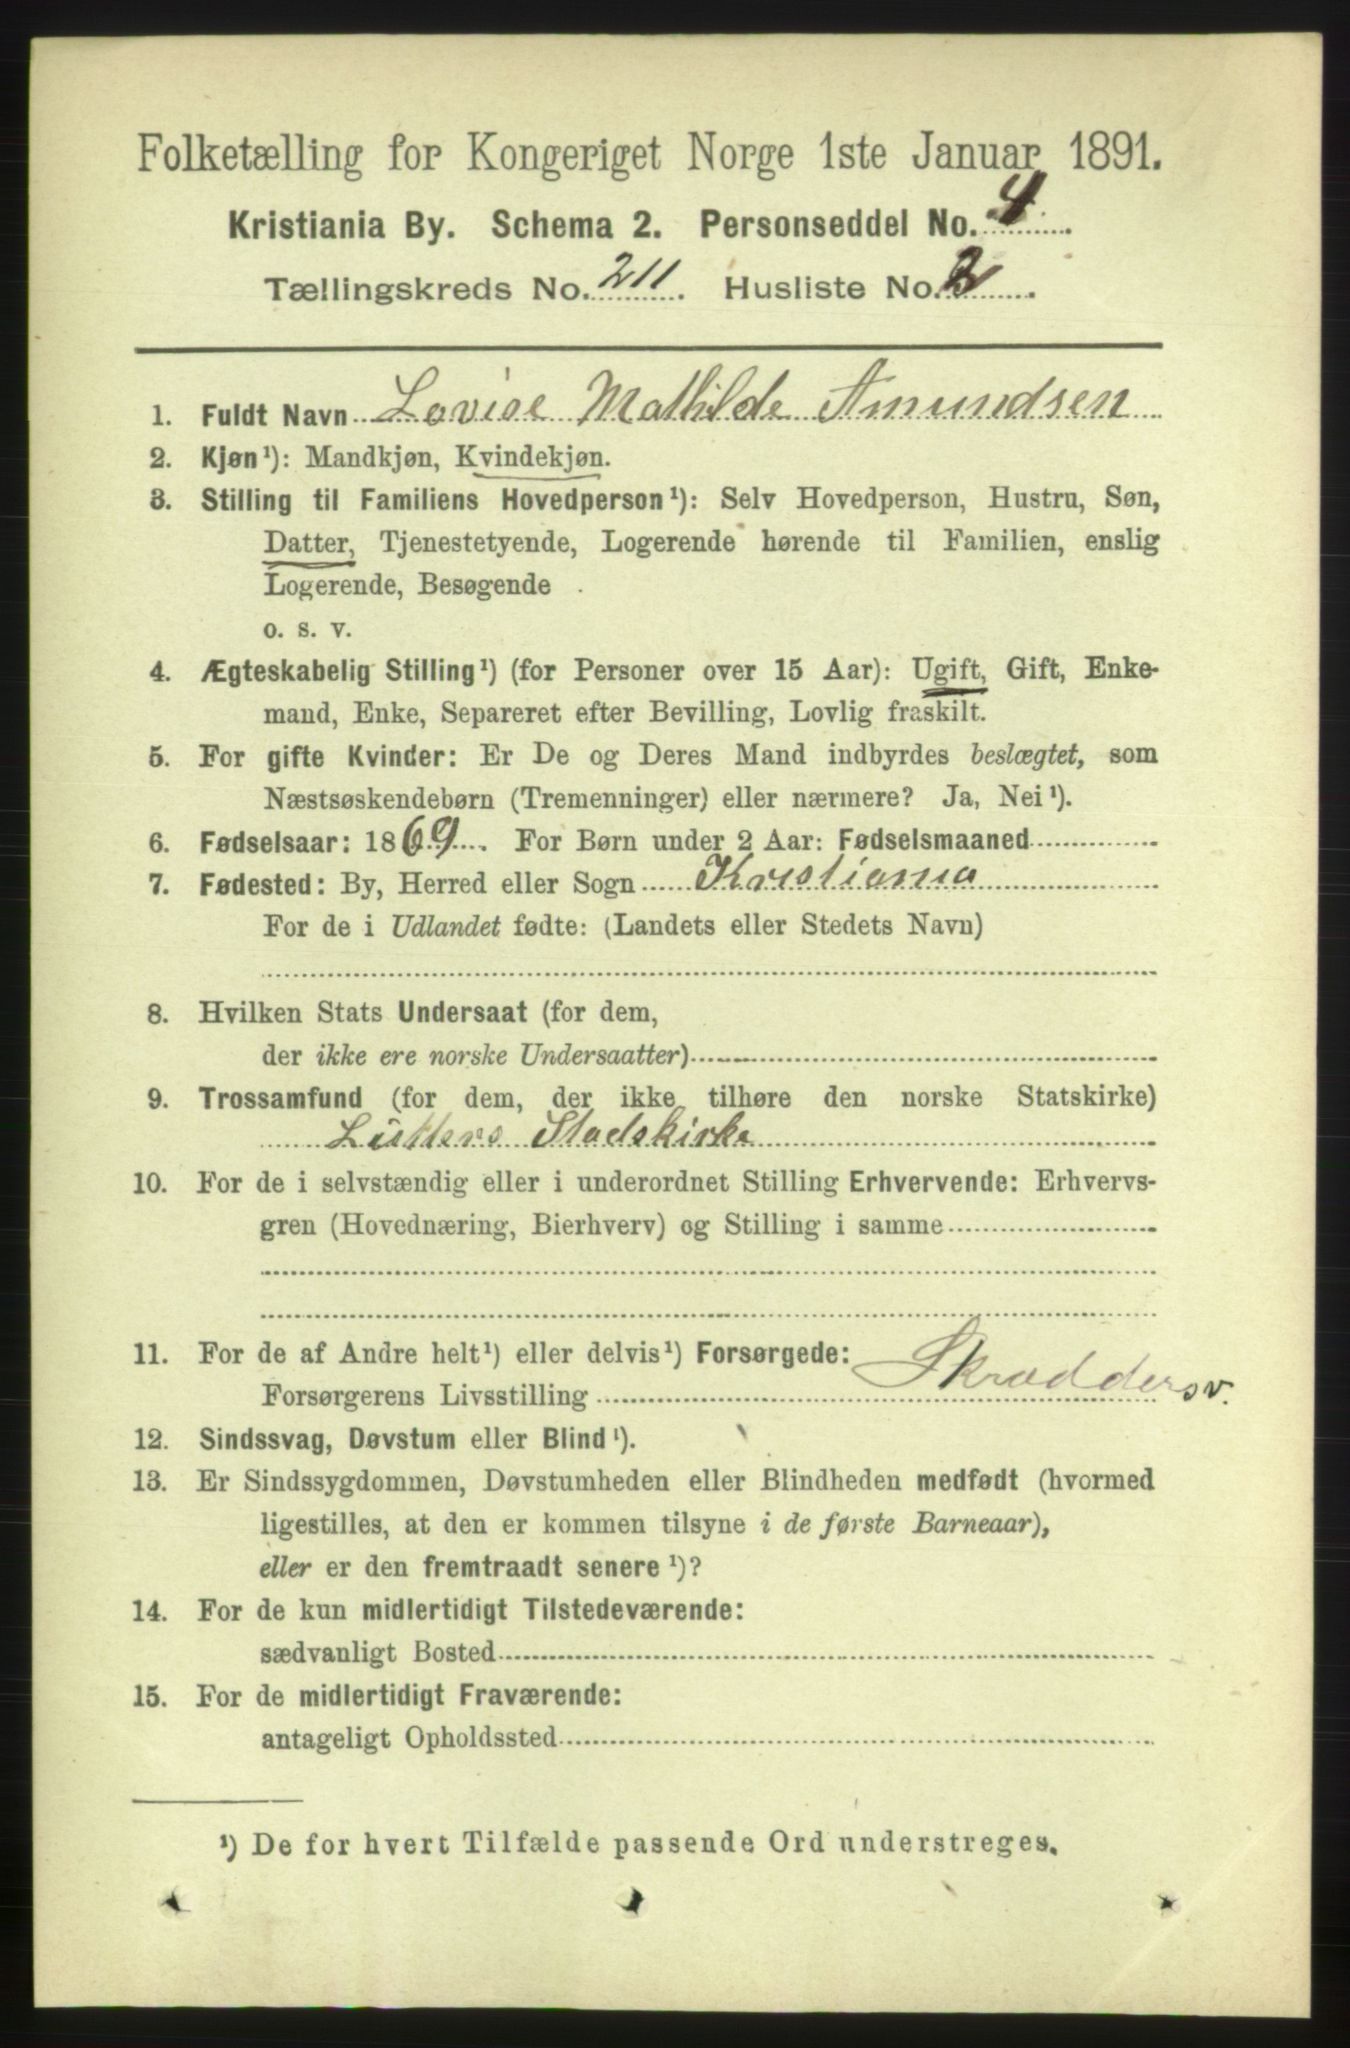 Folketælling for Kongeriget Norge 1ste Januar 1891.
Kristiania By. Schema 2. Personseddel No. 4
Tællingskreds No. 211. Husliste No. 2
1. Fuldt Navn Lovise Mathilde Amundsen
2. Kjøn¹): Mandkjøn, Kvindekjøn.
3. Stilling til Familiens Hovedperson¹): Selv Hovedperson, Hustru, Søn,
Datter, Tjenestetyende, Logerende hørende til Familien, enslig
Logerende, Besøgende
o. s. v.
4. Ægteskabelig Stilling¹) (for Personer over 15 Aar): Ugift, Gift, Enke-
mand, Enke, Separeret efter Bevilling, Lovlig fraskilt.
5. For gifte Kvinder: Er De og Deres Mand indbyrdes beslægtet, som
Næstsøskendebørn (Tremenninger) eller nærmere? Ja, Nei¹).
6. Fødselsaar: 1869. For Børn under 2 Aar: Fødselsmaaned
7. Fødested: By, Herred eller Sogn Kristiania
For de i Udlandet fødte: (Landets eller Stedets Navn)
8. Hvilken Stats Undersaat (for dem,
der ikke ere norske Undersaatter)
9. Trossamfund (for dem, der ikke tilhøre den norske Statskirke)
Lutters Stadskirke
10. For de i selvstændig eller i underordnet Stilling Erhvervende: Erhvervs-
gren (Hovednæring, Bierhverv) og Stilling i samme
11. For de af Andre helt¹) eller delvis¹) Forsørgede:
Forsørgerens Livsstilling Skræddersv.
12. Sindssvag, Døvstum eller Blind¹).
13. Er Sindssygdommen, Døvstumheden eller Blindheden medfødt (hvormed
ligestilles, at den er kommen tilsyne i de første Barneaar),
eller er den fremtraadt senere¹)?
14. For de kun midlertidigt Tilstedeværende:
sædvanligt Bosted
15. For de midlertidigt Fraværende:
antageligt Opholdssted
¹) De for hvert Tilfælde passende Ord understreges.